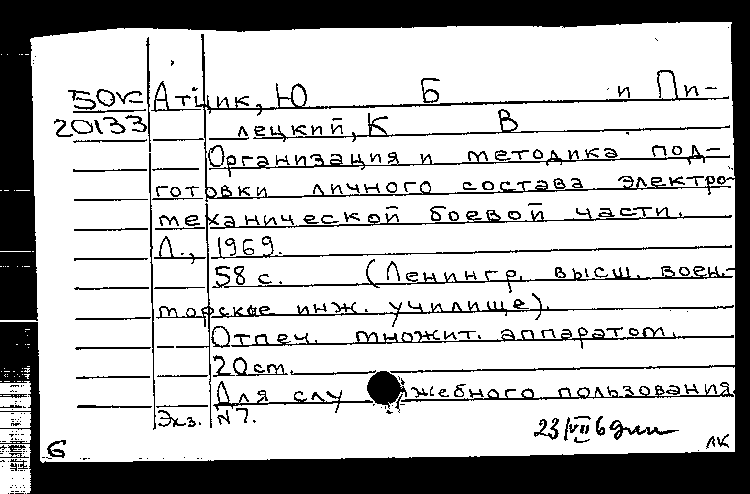 50к Атцик, Ю Б и Пи-
20133 лецкий, К В
Организация и методика под-
готовки личного состава электро-
механической боевой части.
Л., 1969.
58 с. (Ленингр. высш. воен.-
морское инж. училище).
Отпеч. множит. аппаратом.
20 см.
Для служебного пользования.
Экз. №7.
6
ЛК